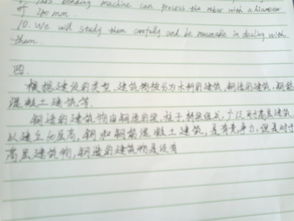 This bending machine can process the rebar with a diameter
of 40 mm.
10. We will study them carefully and be reasonable in dealing with
them.
四.
根据建筑的类型,建筑物被分为木料的建筑,钢结构建筑,钢筋
混凝土建筑等.
钢造的建筑物由钢造的梁,柱子,
钢和钢筋混凝土建筑,是有竞争力,但是对于
高层建筑物,钢造的建筑物是